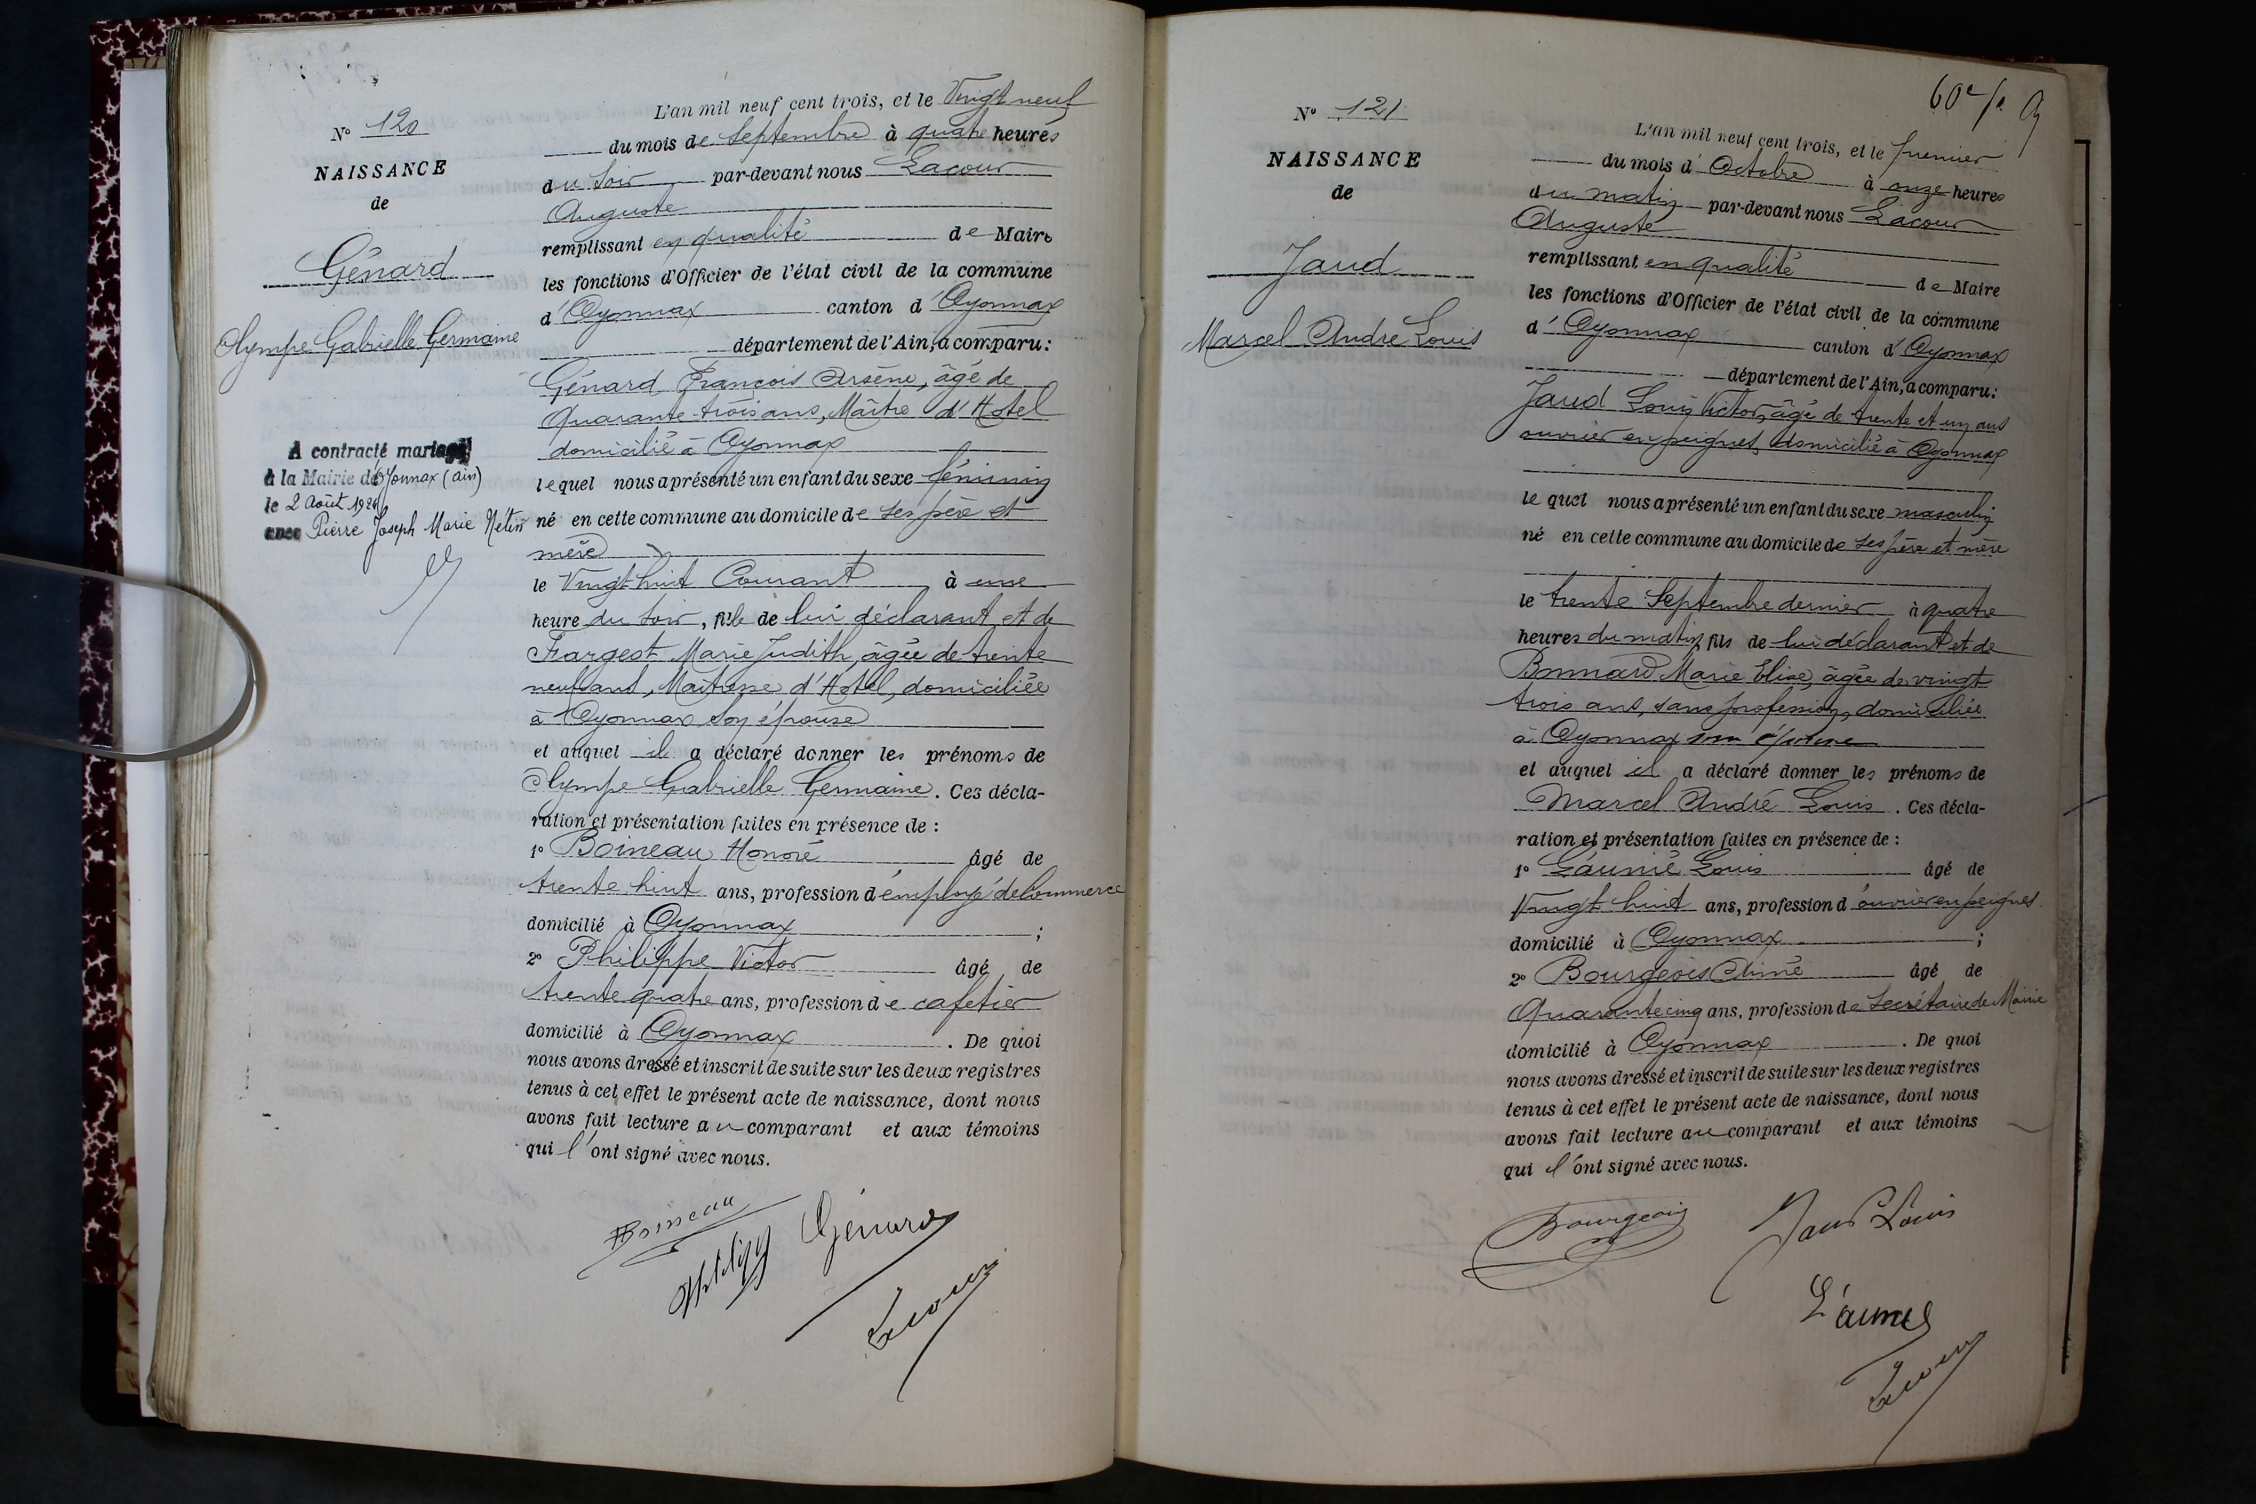 N° 120
NAISSANCE
de
Génard
Olympe Gabrielle Germaine
A contracté mariage
à la Mairie d'Oyonnax (Ain)
le 2 Août 192
avec Pierre Joseph Marie Netin
L'an mil neuf cent trois, et le Vingt neuf
du mois de Septembre à quatre heures
du soir par-devant nous Lacour
Auguste
remplissant en qualité de Maire
les fonctions d'Officier de l'état civil de la commune
d'Oyonnax canton d'Oyonnax
département de l'Ain, a comparu :
Génard François Arsène, âgé de
Quarante-trois ans, Maître d'Hotel
domicilié à Oyonnax
lequel nous a présenté un enfant du sexe féminin
né en cette commune au domicile de ses père et
mère
le Vingt-huit Courant à une
heure du soir, fille de lui déclarant et de
Fargest Marie Judith, âgée de trente
neuf ans, Maîtresse d'Hotel, domiciliée
à Oyonnax son épouse
et auquel il a déclaré donner les prénoms de
Olympe Gabrielle Germaine. Ces décla-
ration et présentation faites en présence de :
1° Boineau Honoré âgé de
trente-huit ans, profession d'employé de Commerce
domicilié à Oyonnax ;
2° Philippe Victor âgé de
trente quatre ans, profession de cafetier
domicilié à Oyonnax . De quoi
nous avons dressé et inscrit de suite sur les deux registres
tenus à cet effet le présent acte de naissance, dont nous
avons fait lecture au comparant et aux témoins
qui l'ont signé avec nous.
Boineau
Philippe
Génard
Lacour
60e fe
N° 121
NAISSANCE
de
Jaud
Marcel André Louis
L'an mil neuf cent trois, et le premier
du mois d'Octobre à onze heures
du matin par-devant nous Lacour
Auguste
remplissant en qualité de Maire
les fonctions d'Officier de l'état civil de la commune
d'Oyonnax canton d'Oyonnax
département de l'Ain, a comparu :
Jaud Louis Victor, âgé de trente et un ans
ouvrier en peignes, domicilié à Oyonnax
lequel nous a présenté un enfant du sexe masculin
né en cette commune au domicile de ses père et mère
le trente Septembre dernier à quatre
heures du matin, fils de lui déclarant et de
Bonnard Marie Elise, âgée de vingt
trois ans, sans profession, domiciliée
à Oyonnax son épouse
et auquel il a déclaré donner les prénoms de
Marcel André Louis . Ces décla-
ration et présentation faites en présence de :
1° Láunié Louis âgé de
Vingt huit ans, profession d'ouvrier en peignes
domicilié à Oyonnax ;
2° Bourgeois Aimé âgé de
Quarante cinq ans, profession de Secrétaire de Mairie
domicilié à Oyonnax . De quoi
nous avons dressé et inscrit de suite sur les deux registres
tenus à cet effet le présent acte de naissance, dont nous
avons fait lecture au comparant et aux témoins
qui l'ont signé avec nous.
Bourgeois
Jaud Louis
Lacour